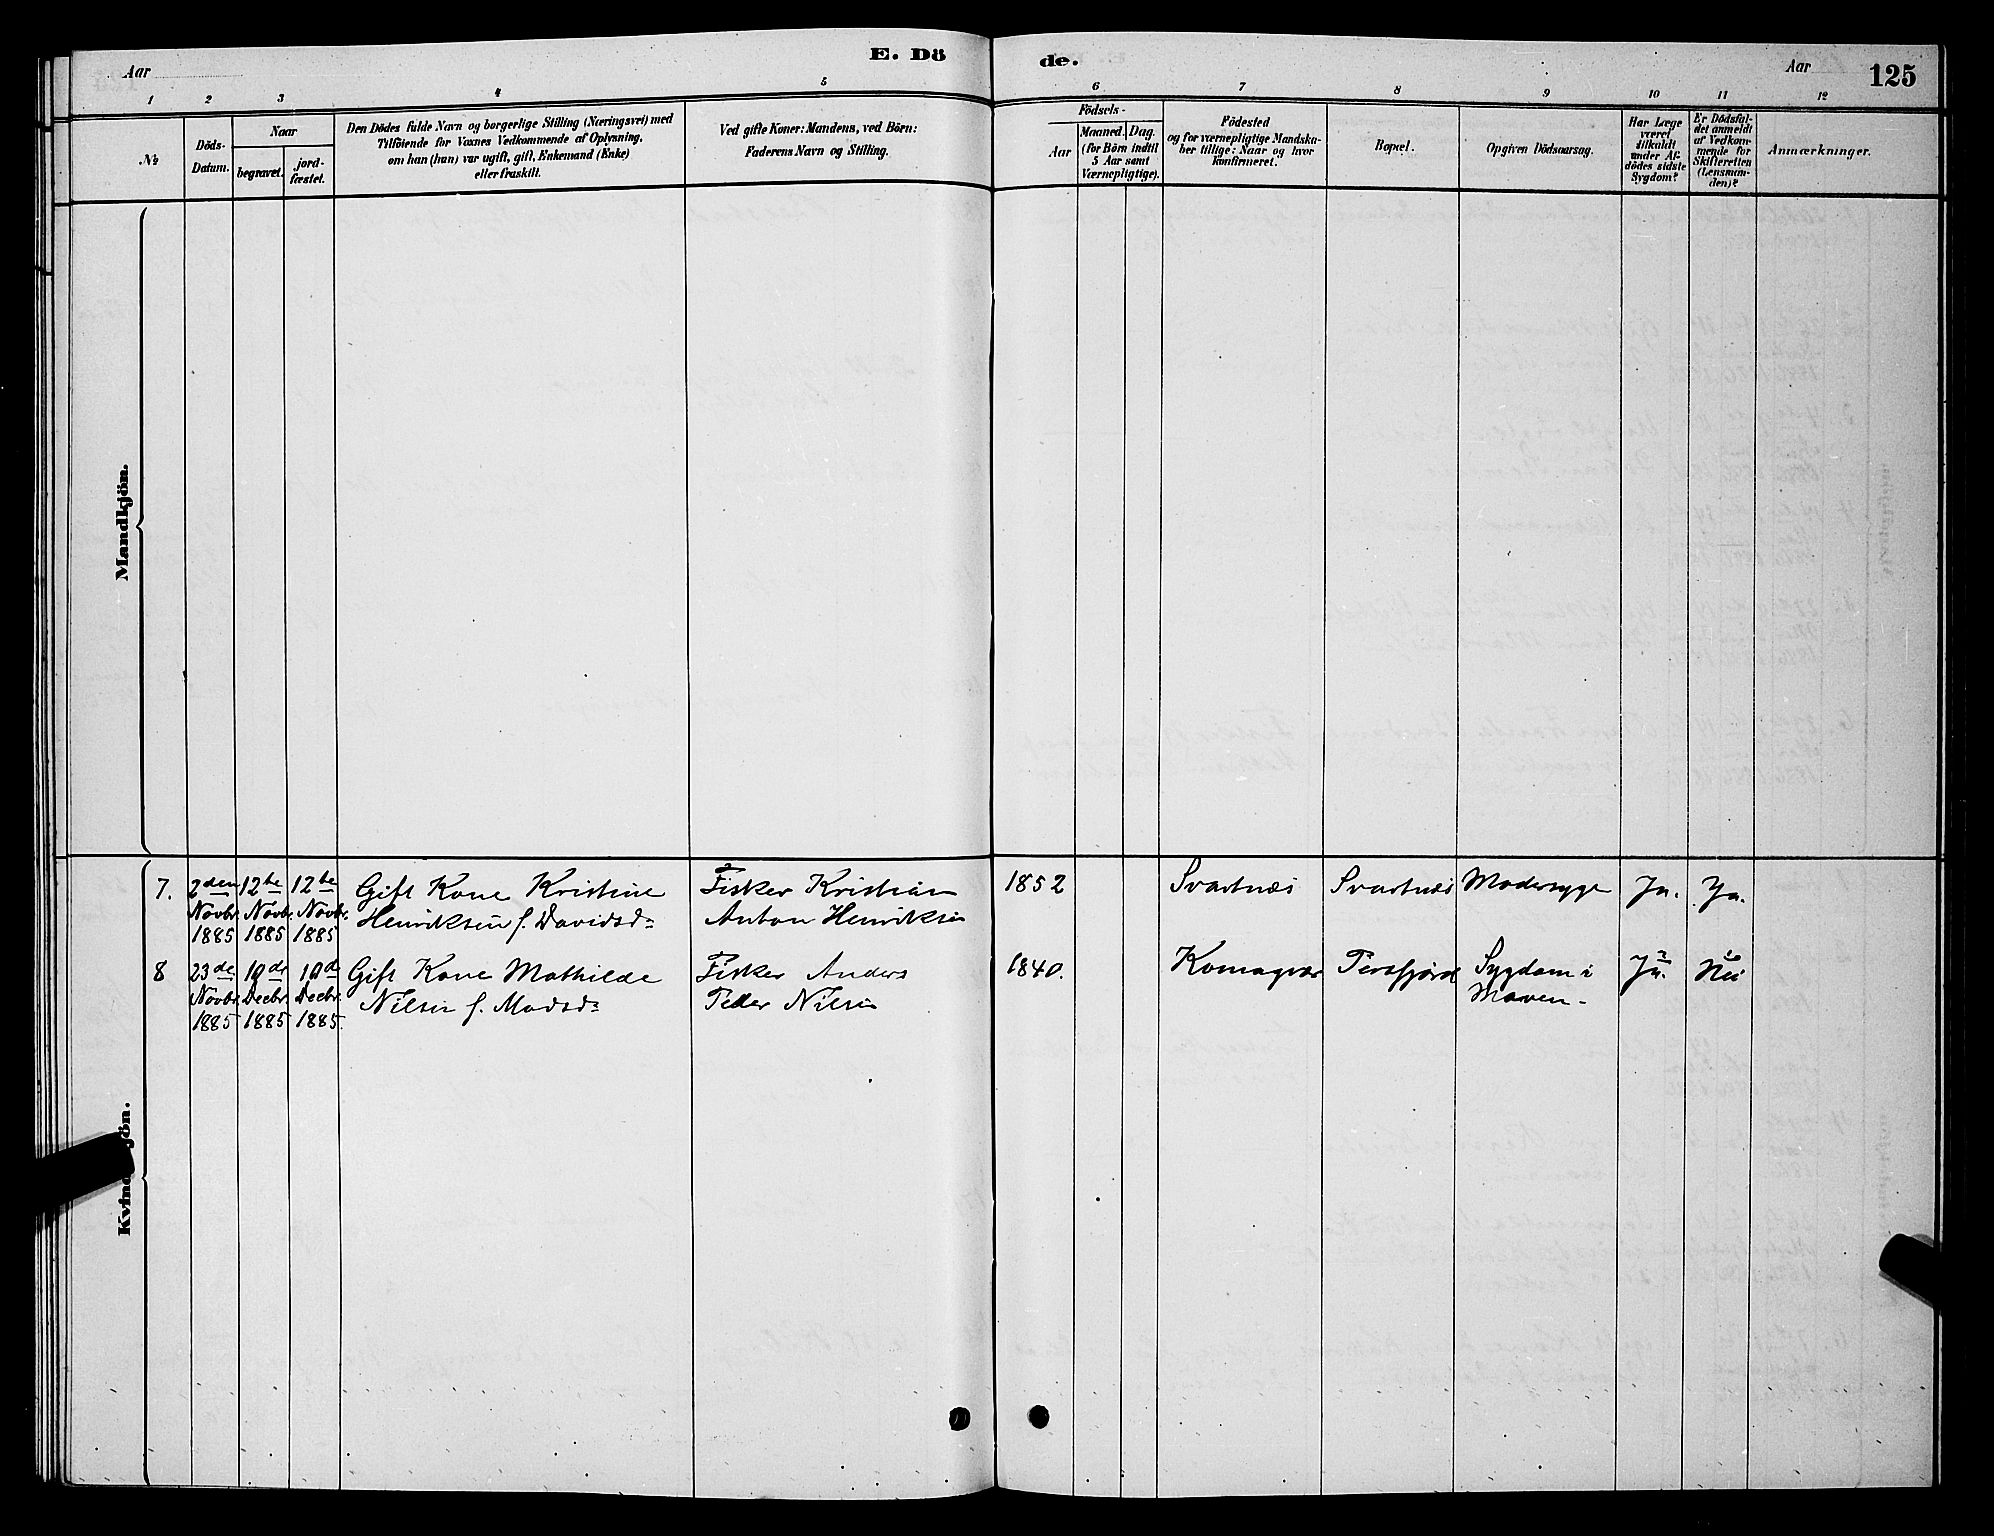 Aar
E. Dö
de.
Aar
125
1
2
3
4
5
6
7
8
9
10
11
12
№
Döds-
Datum.
Naar
begravet.
jord-
fæstet.
Den Dödes fulde Navn og borgerlige Stilling (Næringsvei) med
Tilföiende for Voxnes Vedkommende af Oplysning,
om han (hun) var ugift, gift, Enkemand (Enke)
eller fraskilt.
Ved gifte Koner: Mandens, ved Börn:
Faderens Navn og Stilling.
Födsels-
Aar
Maaned.
Dag.
(for Börn indtil
5 Aar samt
Værnepligtige).
Födested
og for værnepligtige Mandska-
ber tillige: Naar og hvor
konfirmeret.
Bopæl.
Opgiven Dödsaarsag.
Har Læge
været
tilkaldt
under Af-
dödes sidste
Sygdom?
Er Dödsfal-
det anmeldt
af Vedkom-
mende for
Skifteretten
(Lensman-
den)?
Anmærkninger.
Mandkjön.
7. 2den 12te 12te Gift Kone Kristine Fisker Kristian 1852 Svartnæs Svartnæs Modersyge Ja. Ja.
Novbr. Novbr. Novbr. Henriksen f. Davidsd. Anton Henriksen
1885 1885 1885
8 23de 10de 10de Gift Kone Mathilde Fisker Anders 1840. Komagvær Persfjord Sygdom i Ja. Nei
Novbr. Decbr. Decbr. Nilsen f. Madsd. Peder Nilsen Maven-
1885 1885 1885.